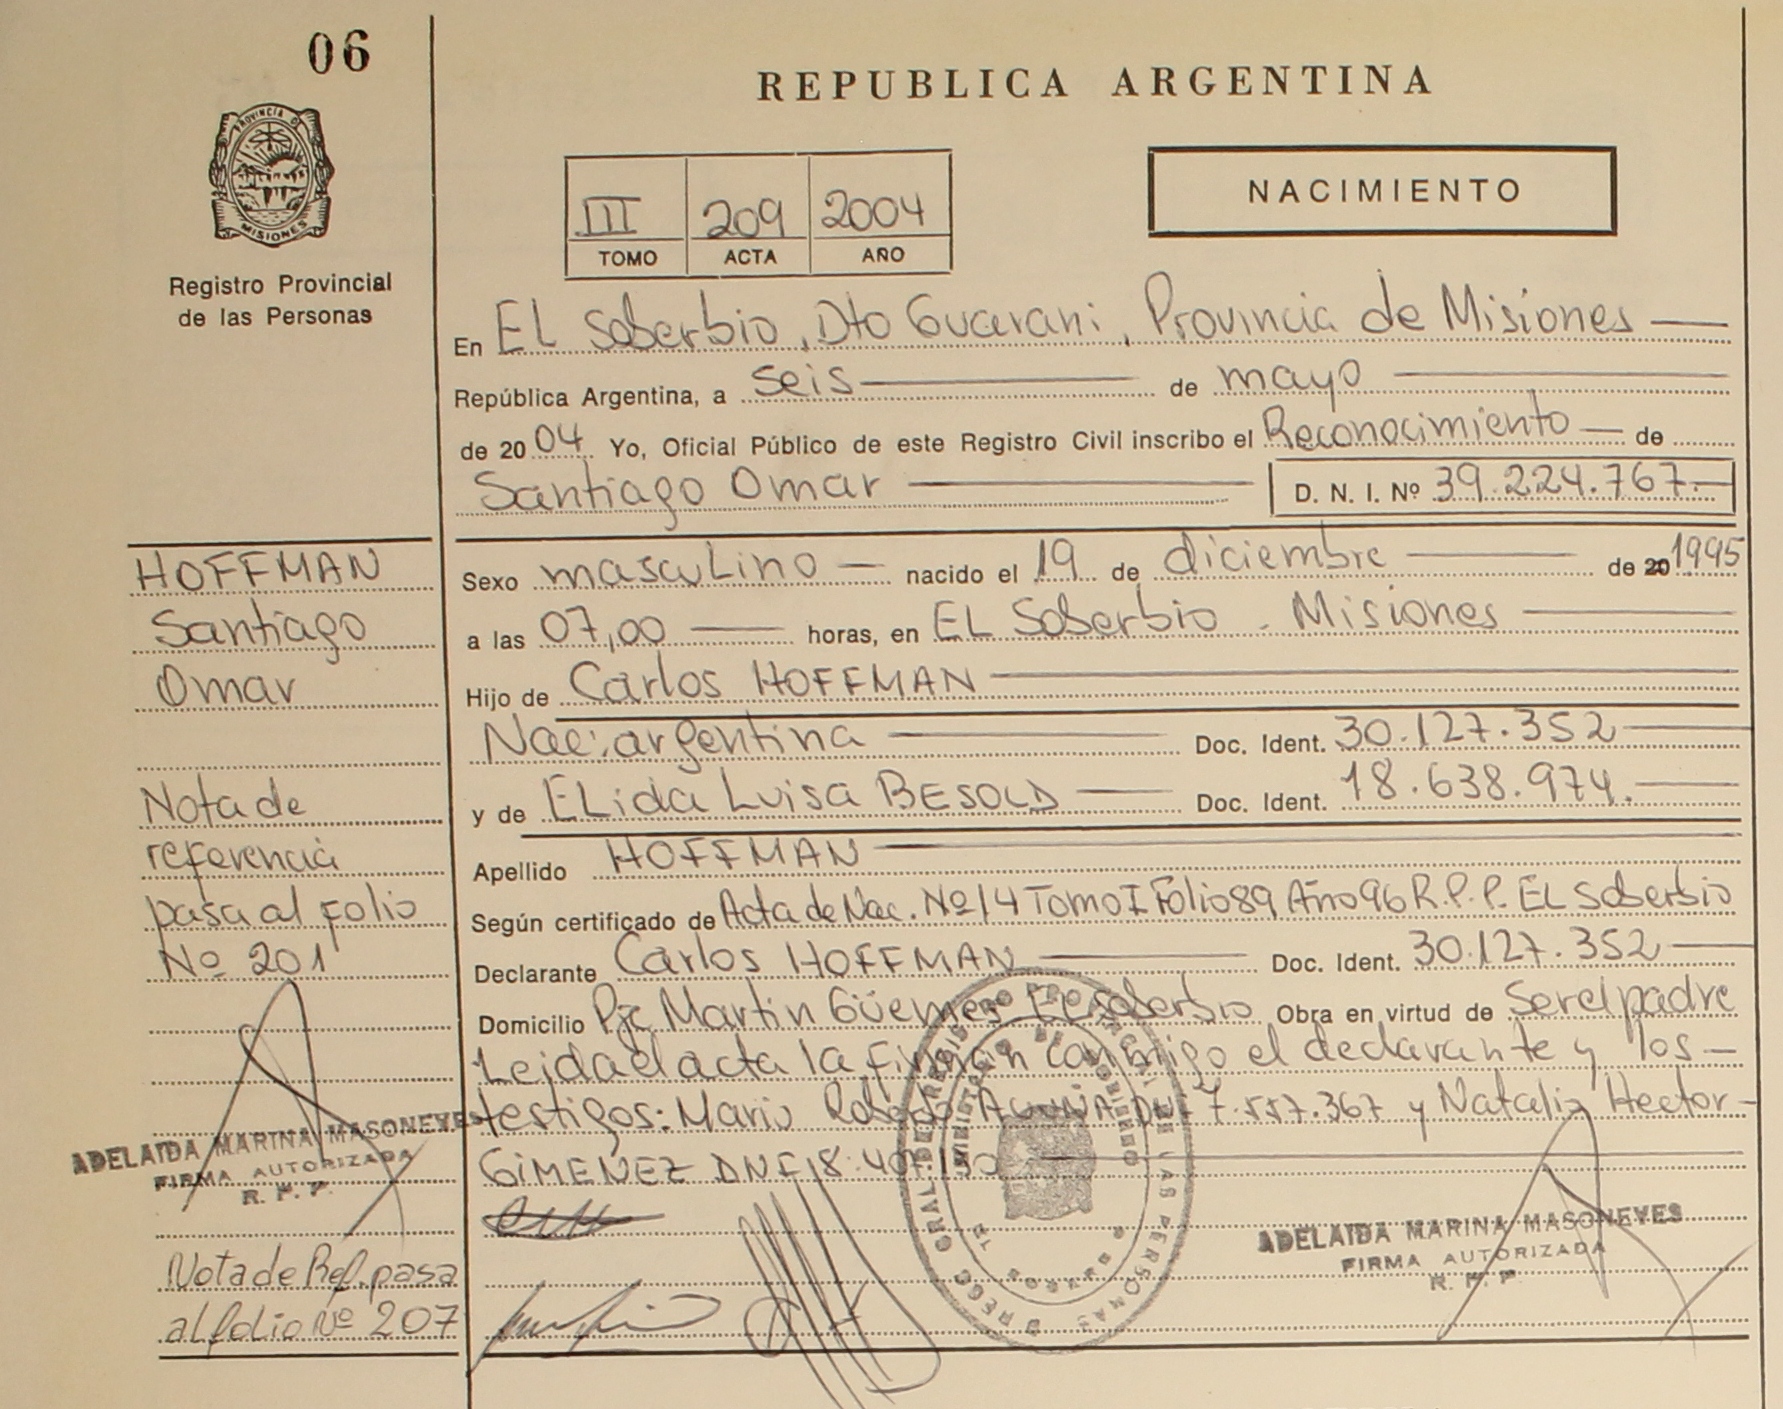 06
REPUBLICA ARGENTINA
PROVINCIA DE
MISIONES
Registro Provincial
de las Personas
III 209 2004
TOMO ACTA AÑO
NACIMIENTO
En EL Soberbio, Dto Guarani, Provincia de Misiones
República Argentina, a seis de mayo
de 2004 Yo, Oficial Público de este Registro Civil inscribo el Reconocimiento de
Santiago Omar D. N. I. Nº 39.224.767.-
HOFFMAN
Santiago
Omar
Sexo masculino nacido el 19 de diciembre de 20 1995
a las 07,00 horas, en EL Soberbio - Misiones
Hijo de Carlos HOFFMAN
Nac: argentina Doc. Ident. 30.127.352
y de ELida Luisa BESOLD Doc. Ident. 18.638.974.
Apellido HOFFMAN
Según certificado de Acta de Nac. Nº 14 Tomo I Folio 89 Año 96 R.P.P. EL Soberbio
Declarante Carlos HOFFMAN Doc. Ident. 30.127.352
Domicilio Pje Martin Güemes - El Soberbio Obra en virtud de Ser el padre
Leida el acta la firman conmigo el declarante y los
testigos: Mario DNI 7.557.367 y Natalio Hector
GIMENEZ DNI 18.407.
Nota de
referencia
pasa al folio
Nº 201
ADELAIDA MARINA MASONEYES
FIRMA AUTORIZADA
R. P. P.
Nota de Ref. pasa
al folio Nº 207
ADELAIDA MARINA MASONEYES
FIRMA AUTORIZADA
R. P. P.